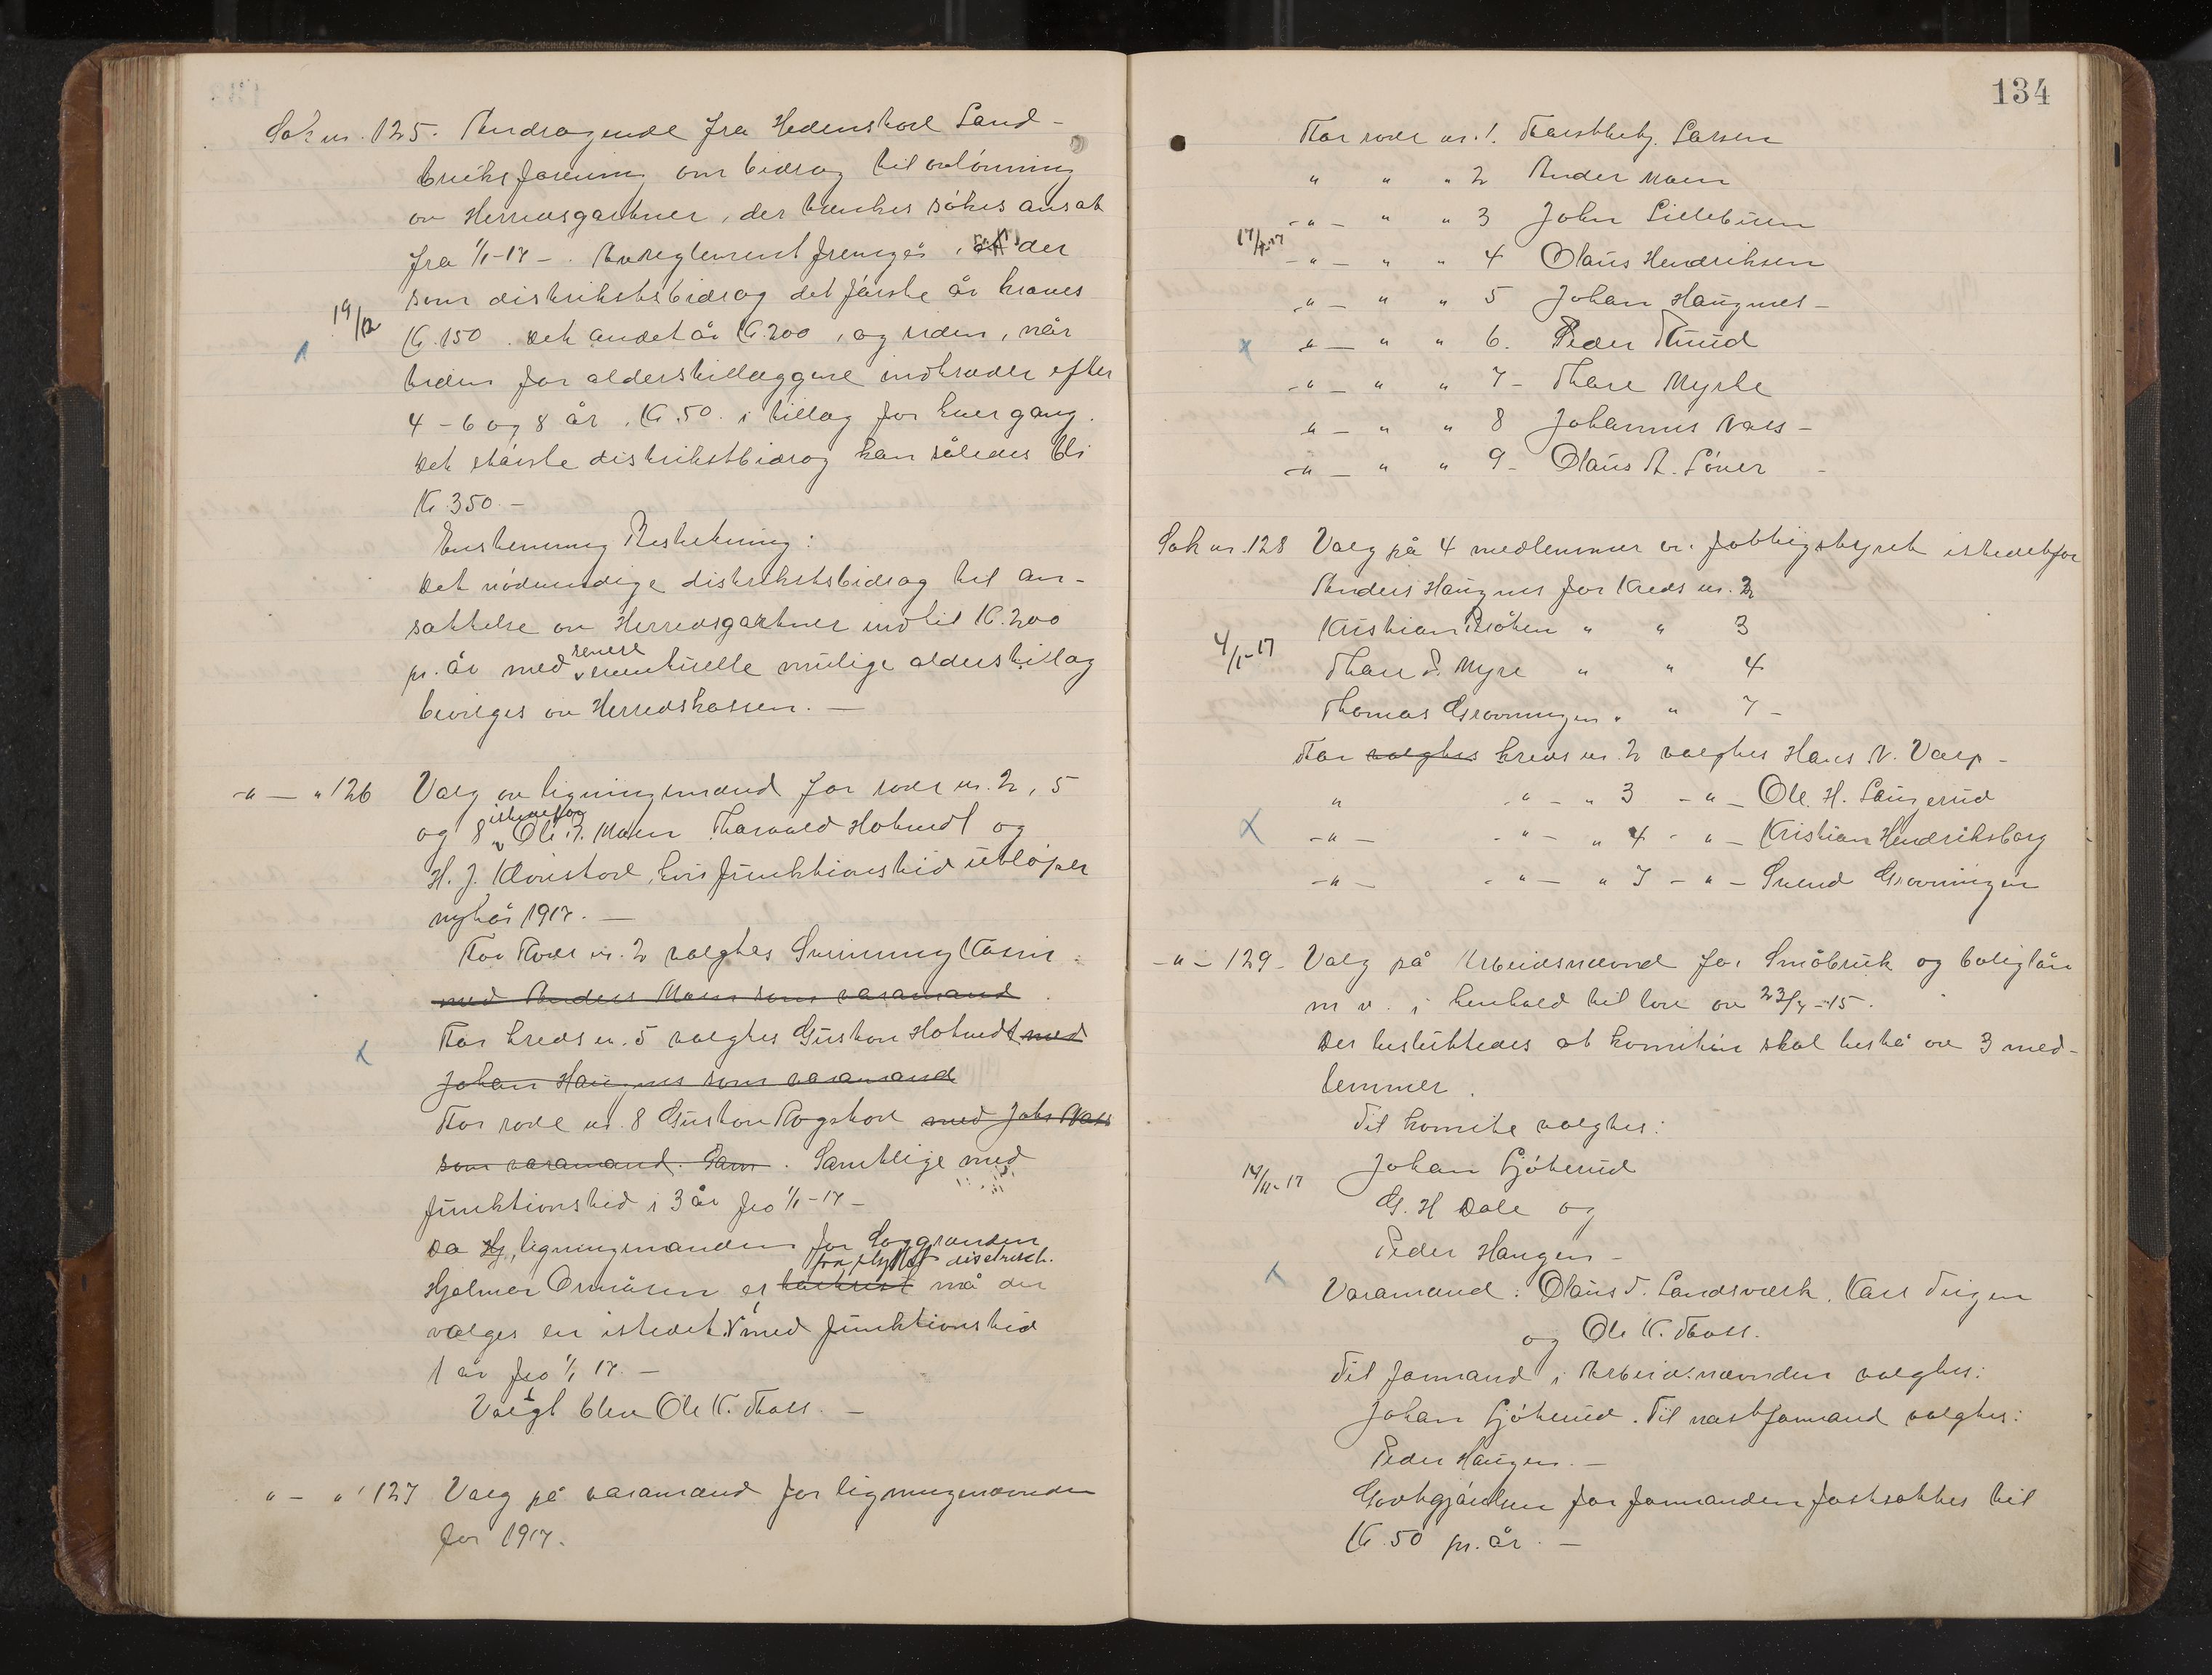 Sak nr. 125. Andragende fra Hedenstad Land-
bruksforening om bidrag til avlönning
av Herredsgartner, der tænkes sökes ansat
fra 1/1-17 -. Av reglement fremgår, at der
som distriktsbidrag det förste år kræves
19/12
Kr. 150. Det andet år Kr. 200, og siden, når
tiden for alderstillæggene indtræder efter
4 - 6 og 8 år, Kr. 50. i tillæg for hver gang.
Det störste distriktsbidrag kan således bli
Kr. 350. -
Enstemmig Beslutning:
Det nödvendige distriktsbidrag til an-
sættelse av Herredsgartner indtil Kr. 200
pr. år med senere eventuelle mulige alderstillæg
bevilges av Herredskassen. -
-"- " 126 Valg av ligningsmænd for rode nr. 2, 5
og 8 istedetfor Ole P. Moen Thorvald Holmedt og
H. J. Klonstad, hvis funktionstid utlöper
nyttår 1917. -
For Rode nr. 2 valgtes Svinnung Kåsin
med Anders Moen som varamand.
For kreds nr. 5 valgtes Gustav Holmedt med
Johan Haugnes som varamand
For rode nr. 8 Gustav Rogstad med Johs Næss
som varamand. Sam. Samtlige med
funktionstid i 3 år fra 1/1-17 -
Da Hj, ligningsmanden for Loggranden
fra flyttet distrikt.
Hjalmar Ormåsen er må der
vælges en istedet. med funktionstid
1 år fra 1/1 17. -
Valgt blev Ole K. Foss. -
" - " 127 Valg på varamænd for ligningsnævnden
for 1917.
134
For rode nr. 1. Larsen
" " " 2 Anders Moen
-"- " " 3 John Lillebuen
17/1-17
-"- " " 4 Olaus Hendriksen
-"- " " 5 Johan Haugnes -
-"- " " 6. Peder Ruud
-"- " " 7 - Thore Myrli
-"- " " 8 Johannes Næss -
-"- " " 9 - Olaus A. Löver -
Sak nr. 128 Valg på 4 medlemmer av fattigstyret istedetfor
Anders Haugnes for Kreds nr. 2
Kristian Bråten " " 3
4/1-17
Thore P. Myre " " 4
Thomas Grovningen " " 7 -
For valgtes kreds nr. 2 valgtes Hans N. Valp -
" -"- " 3 -"- Ole. H. Laugerud
-"- -"- " 4 -"- Kristian Hendriksborg
-"- -"- " 7 -"- Svend Grovningen
-"- 129. Valg på Arbeidsnævnd for Småbruk og boliglån
m v. i henhold til lov av 23/7-15.
Der besluttedes at komiteen skal bestå av 3 med-
lemmer.
Til komite valgtes:
Johan Sjöterud
14/11-17
G. H Dale og
Peder Haugen -
Varamænd: Olaus T. Landsværk, Karl Teigen
og Ole K. Foss.
Til formand i Arbeidsnævnden valgtes:
Johan Sjöterud. Til næstformand valgtes:
Peder Haugen. -
Godtgjörelsen for formanden fastsættes til
Kr. 50 pr. år. -